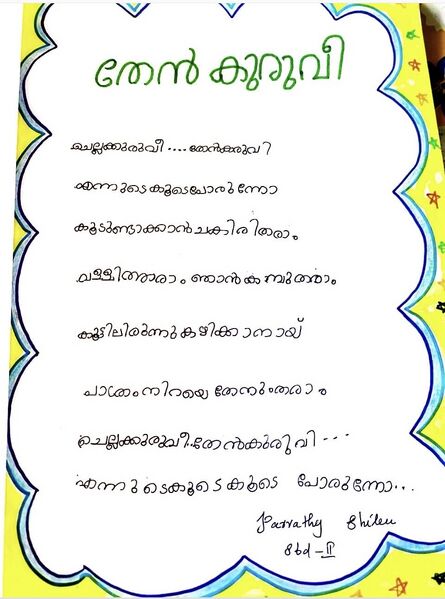 തേൻ കുരുവീ
ചെല്ലക്കുരുവീ....തേൻകുരുവി
എന്നുടെ കൂടെപോരുന്നോ
കൂടുണ്ടാക്കാൻ ചകിരിതരാം
വള്ളിത്തരാം ഞാൻ കമ്പുതരാം
കൂട്ടിലിരുന്നു കഴിക്കാനായ്
പാത്രം നിറയെ തേനുംതരാം
ചെല്ലക്കുരുവീ..തേൻകുരുവി...
എന്നുടെകൂടെ കൂടെ പോരുന്നോ...
Parvathy
Std-II